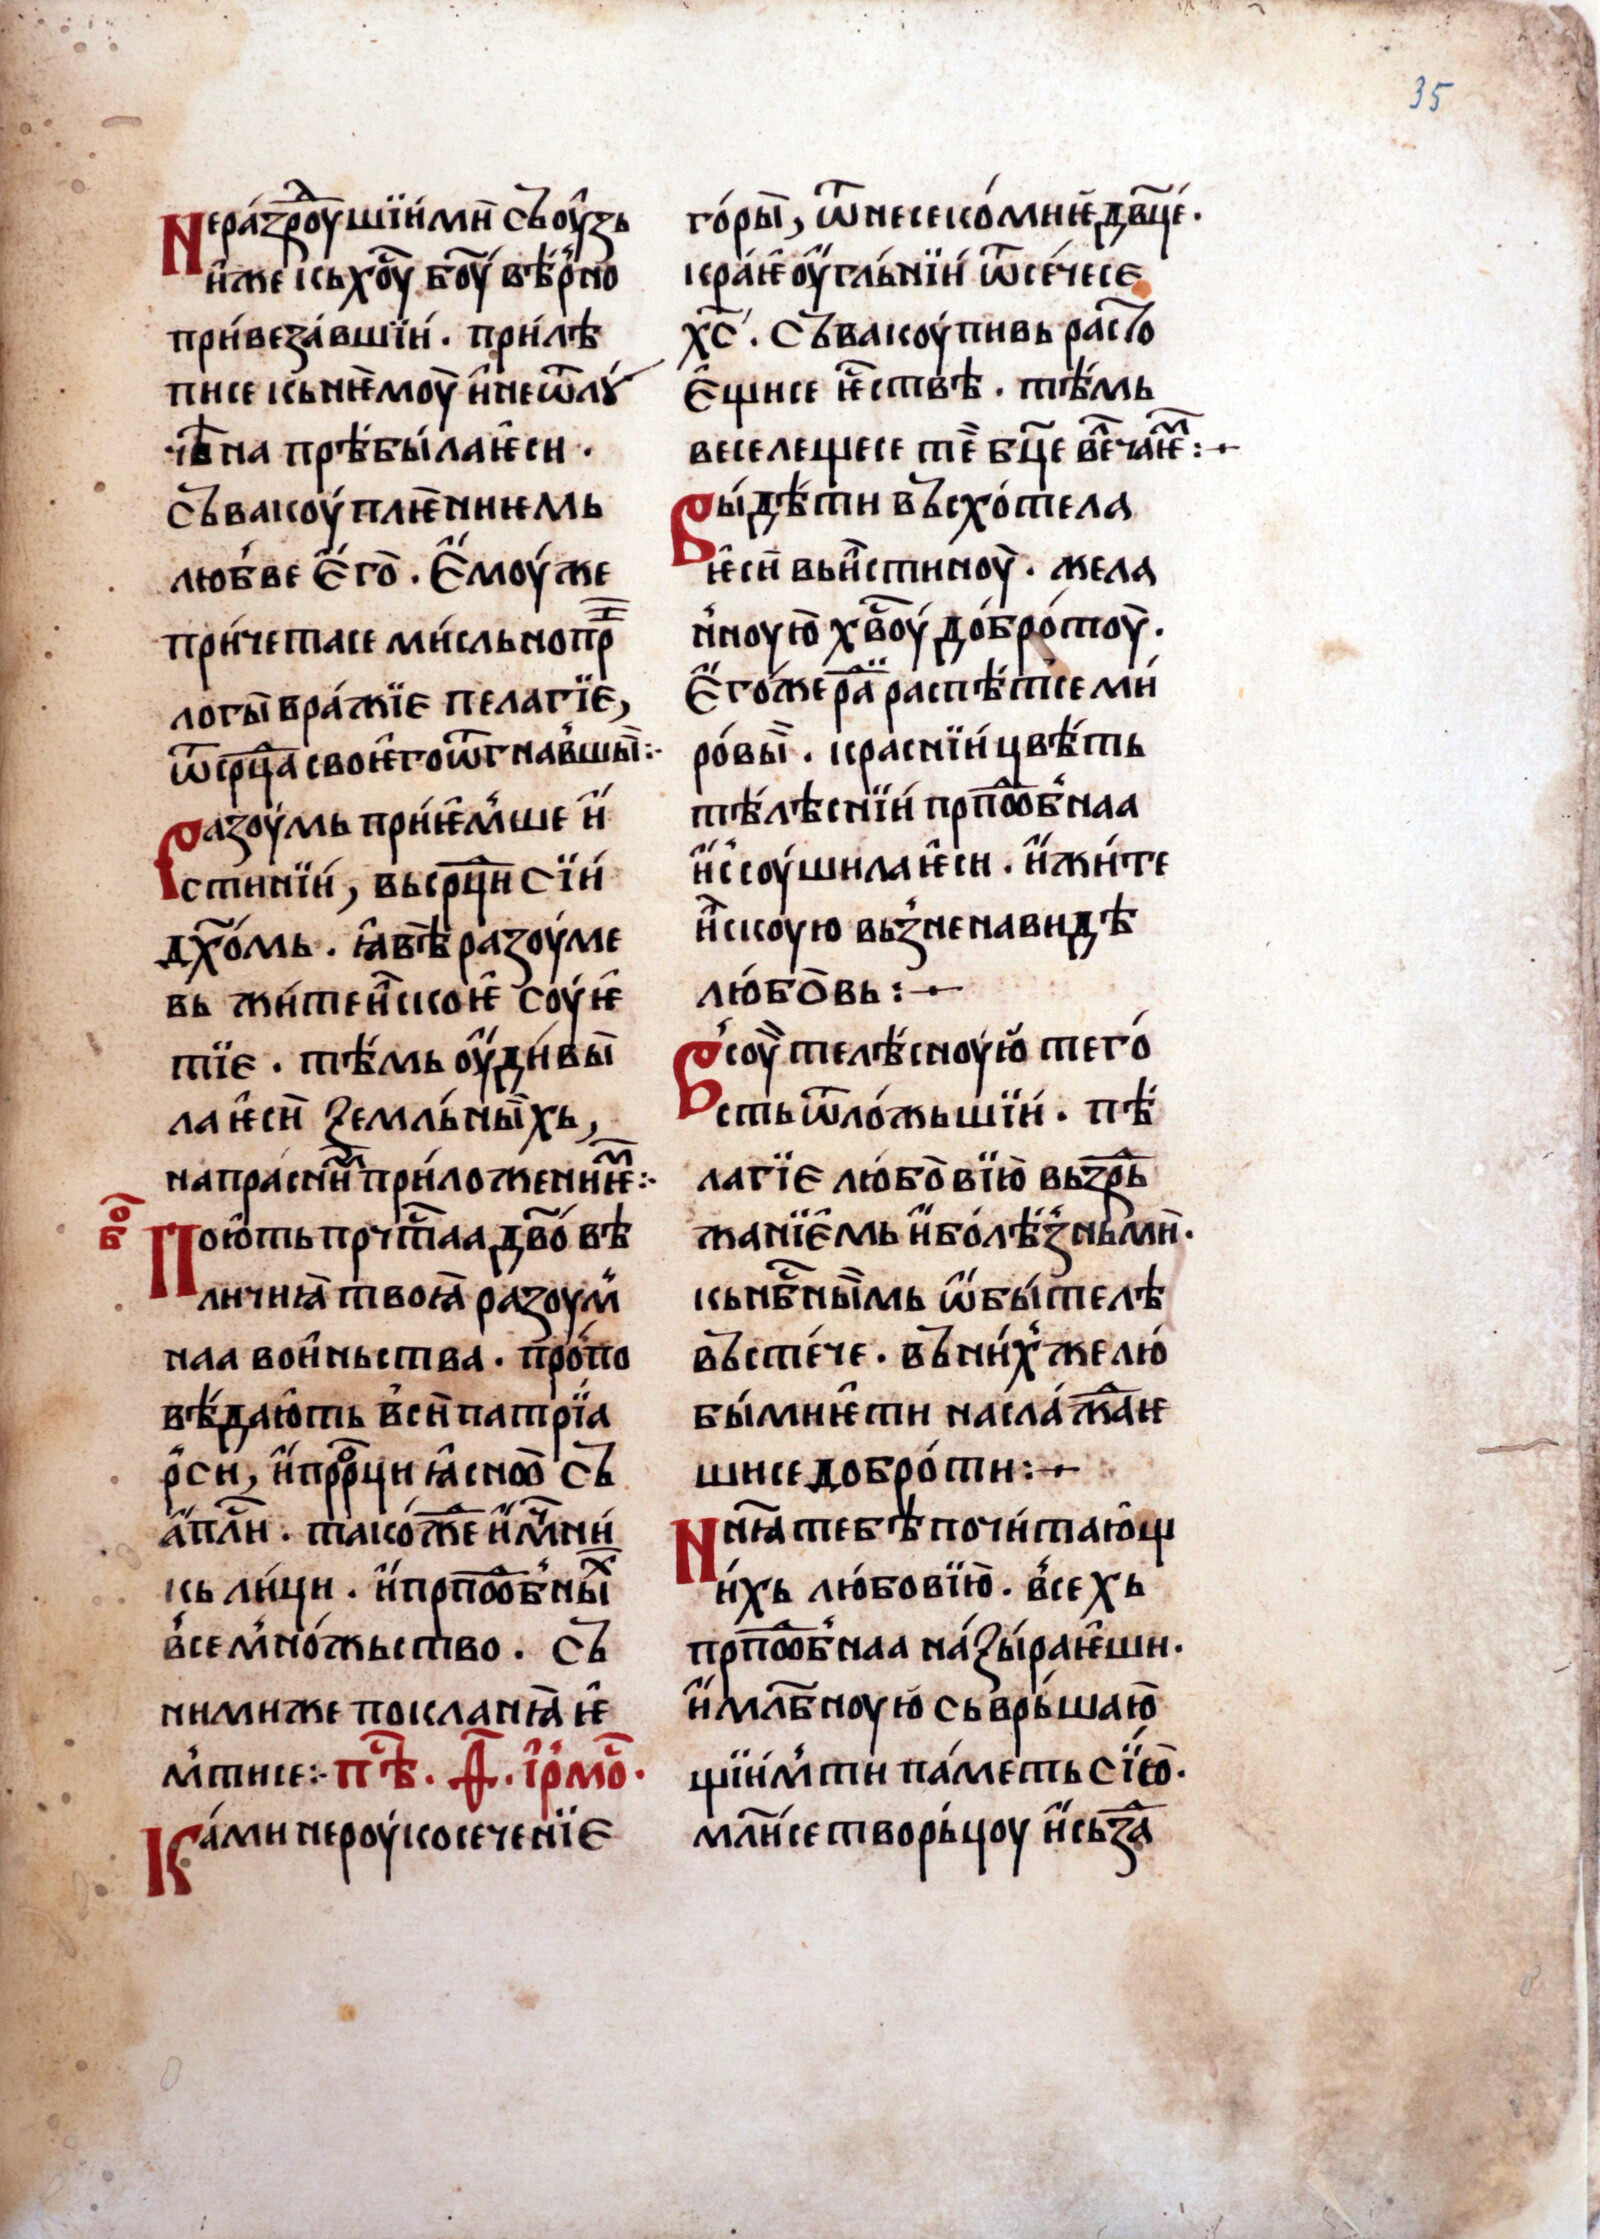 35
Нера́зⷣроушїи́ми съоу́зь
и҆же кьхо҃у бо҃у вѣ́рно
при́веза́вшїи. при́лѣ
писе кьнѥ̀моу̀ и҆неѿлꙋ́
чⷭ҇вна прѣ́бы́лаѥ҆си.
съвакоу́плѥ̀ниѥмь
любве Є҆го̀. Є҆моу́же
при́четасе ми́сльнопрⷩ
логы̀ вра́жїє пелагїє,
ѿсрⷣца своѥ҆гоѿгнавшы̀:·
Разоу́мь приѥ҆мше и҆
стинїи́, вьсрⷣци сїи́
дх҃о́мь. ꙗ҆вѣ̀разоу́ме
вь жи́теи҆скоѥ҆ соу́ѥ҆
тїє. тѣ́мь оу҆ди́вы̀
ла ѥ҆сѝ ꙁемльны̀хь,
напрасниⷨ при́ложениѥⷨ:·
бⷪ҇
Пою҆́ть прчⷭ҇таа дв҃о́ вѣ
личиꙗ̀ твоꙗ̀ разоум
наа вои҆ньства. про́по
вѣ́даю҆ть вси̑ патрїа
рси, и҆прⷪ҇рци ꙗ҆сноѻ съ
а҆пⷭ҇ли. тако́жⷣе и҆мⷱ҇ни́
кь ли́ци. и҆прпⷣобныⷯ
все мно́жьство. съ
нимиже покланꙗ̀ѥ҆
мтисе:· пⷭ҇ѣ. д҃. і҆рмоⷭ.
Ка́ми нероу́косеченїє
го́ры̀, ѿнесеко́миѥ двⷣце́.
краѥ҆оу҆гльнїи́ ѿсе́чесе
хⷭ҇. съвакоу́пивь расто
Є҆щисе ѥ҆ствѣ. тѣ́мь
веселещесе тѐ бцⷣе велⷱ҇чаѥⷨ:·
Вы́дѣти въсхо́тела
ѥ҆сѝ вьи́стиноу̀. жела
нноую̀ хв҃оу́ до́бро́тоу̀.
Є҆го́жера́ⷣ распѣ́тсе ми́
ро́вы̀. краснїи́ цвѣ́ть
тѣ́лѣснїи́ прпⷣобнаа
и҆ссоушила ѥ҆си. и҆жи́те
и҆скоую вьзненавидѣ
лю́бо̀вь:·
Всоу̀ телѣ́сноую̀ тего́
сть ѿло́жьшїи. пѣ́
лагїє лю́бо̀вїю̀ вьзⷣрь
жанїє҆мь и҆бо́лѣзньми̑.
кьнбⷭ҇ны̀мь ѡ҆бы́телѣ
въсте́че. въни́хже лю́
бы́миѥ҆ти насла́жⷣаѥ
шисе добро́ти:·
Ниꙗ̀ тебѣ почи́таю҆щ
и́хь лю́бовїю̀. всехь
прпⷣобнаа на́ꙁы́раѥ҆ши.
и҆млбⷭ҇ноую́ сьврь́шаю̀
щїи́мти па́меть сїю̀.
мли́се творь́цоу и҆сьзⷣа